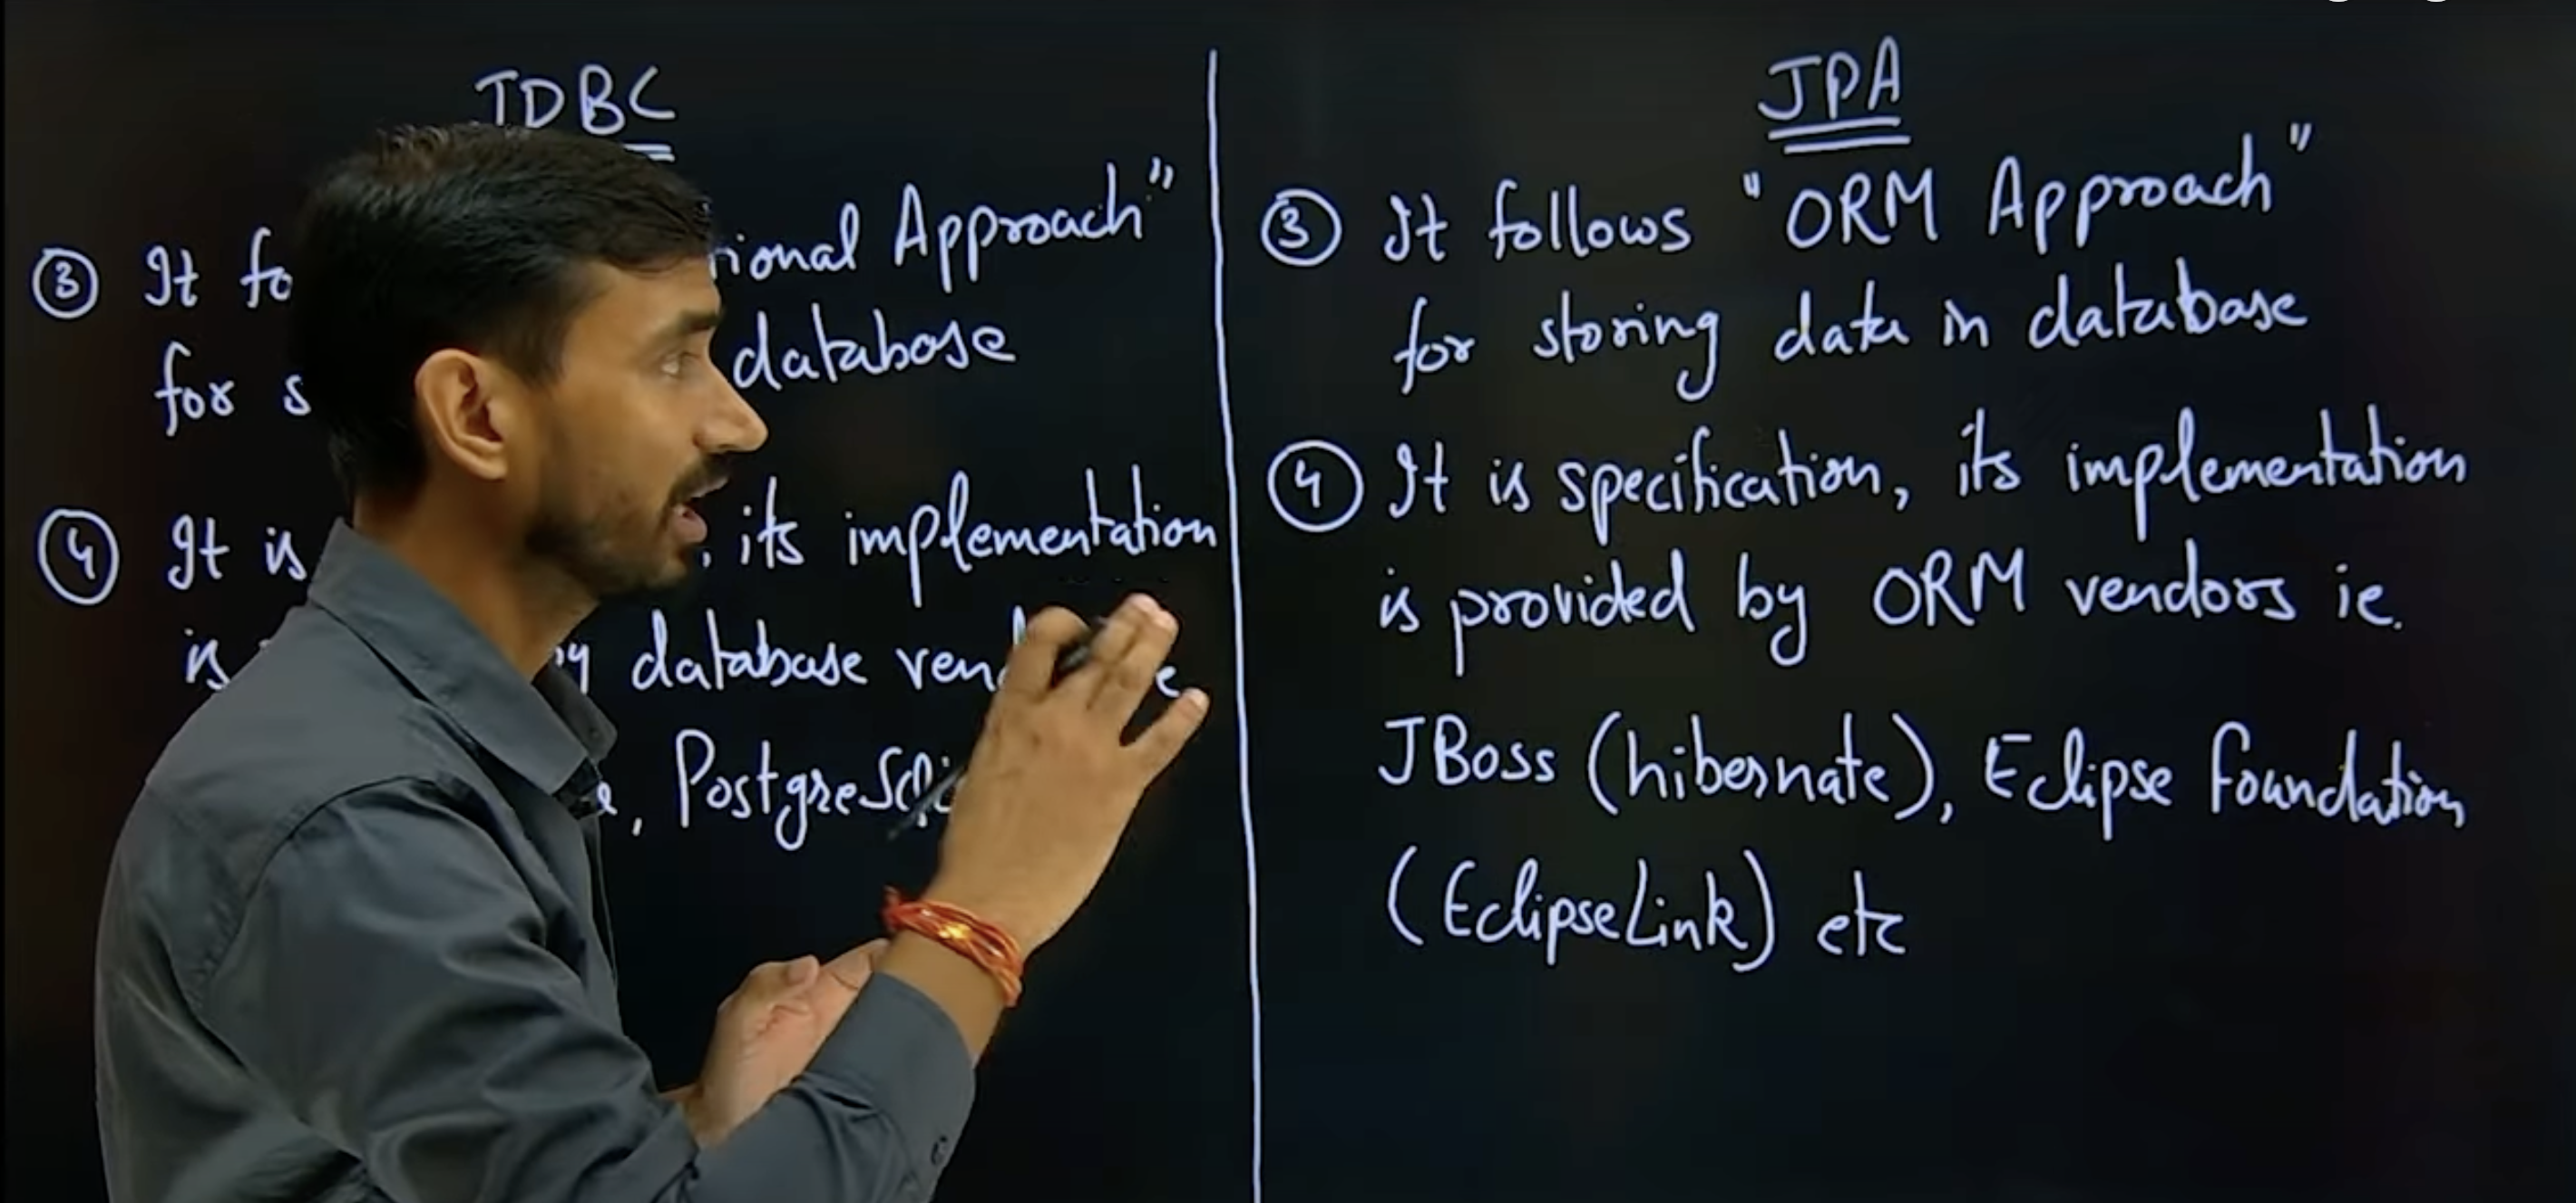 JDBC
③ It fo
ional Approach"
for s
database
④ It is
, its implementation
is
by database ven
, PostgreSQL
JPA
③ It follows "ORM Approach"
for storing data in database
④ It is specification, its implementation
is provided by ORM vendors ie.
JBoss (hibernate), Eclipse foundation
(EclipseLink) etc